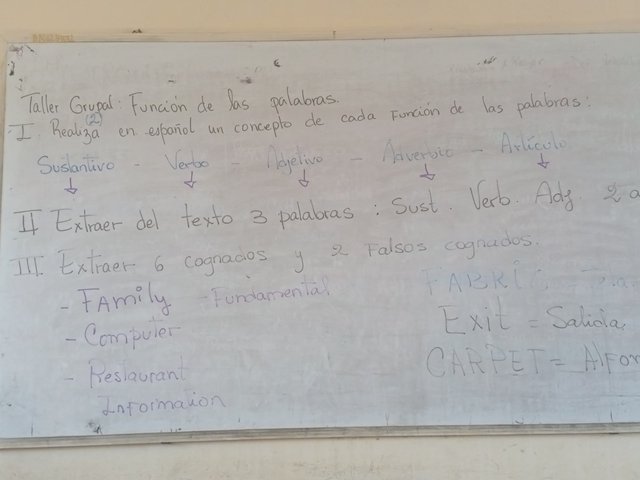 Taller Grupal: Función de las palabras.
I. Realiza (2) en español un concepto de cada Función de las palabras:
Sustantivo - Verbo - Adjetivo - Adverbio - Artículo
II Extraer del texto 3 palabras: Sust. Verb. Adj. 2 a
III. Extraer 6 cognados y 2 Falsos cognados.
- Family - Fundamental
- Computer
- Restaurant
Information
FABRIC
Exit = Salida
CARPET = Alfom